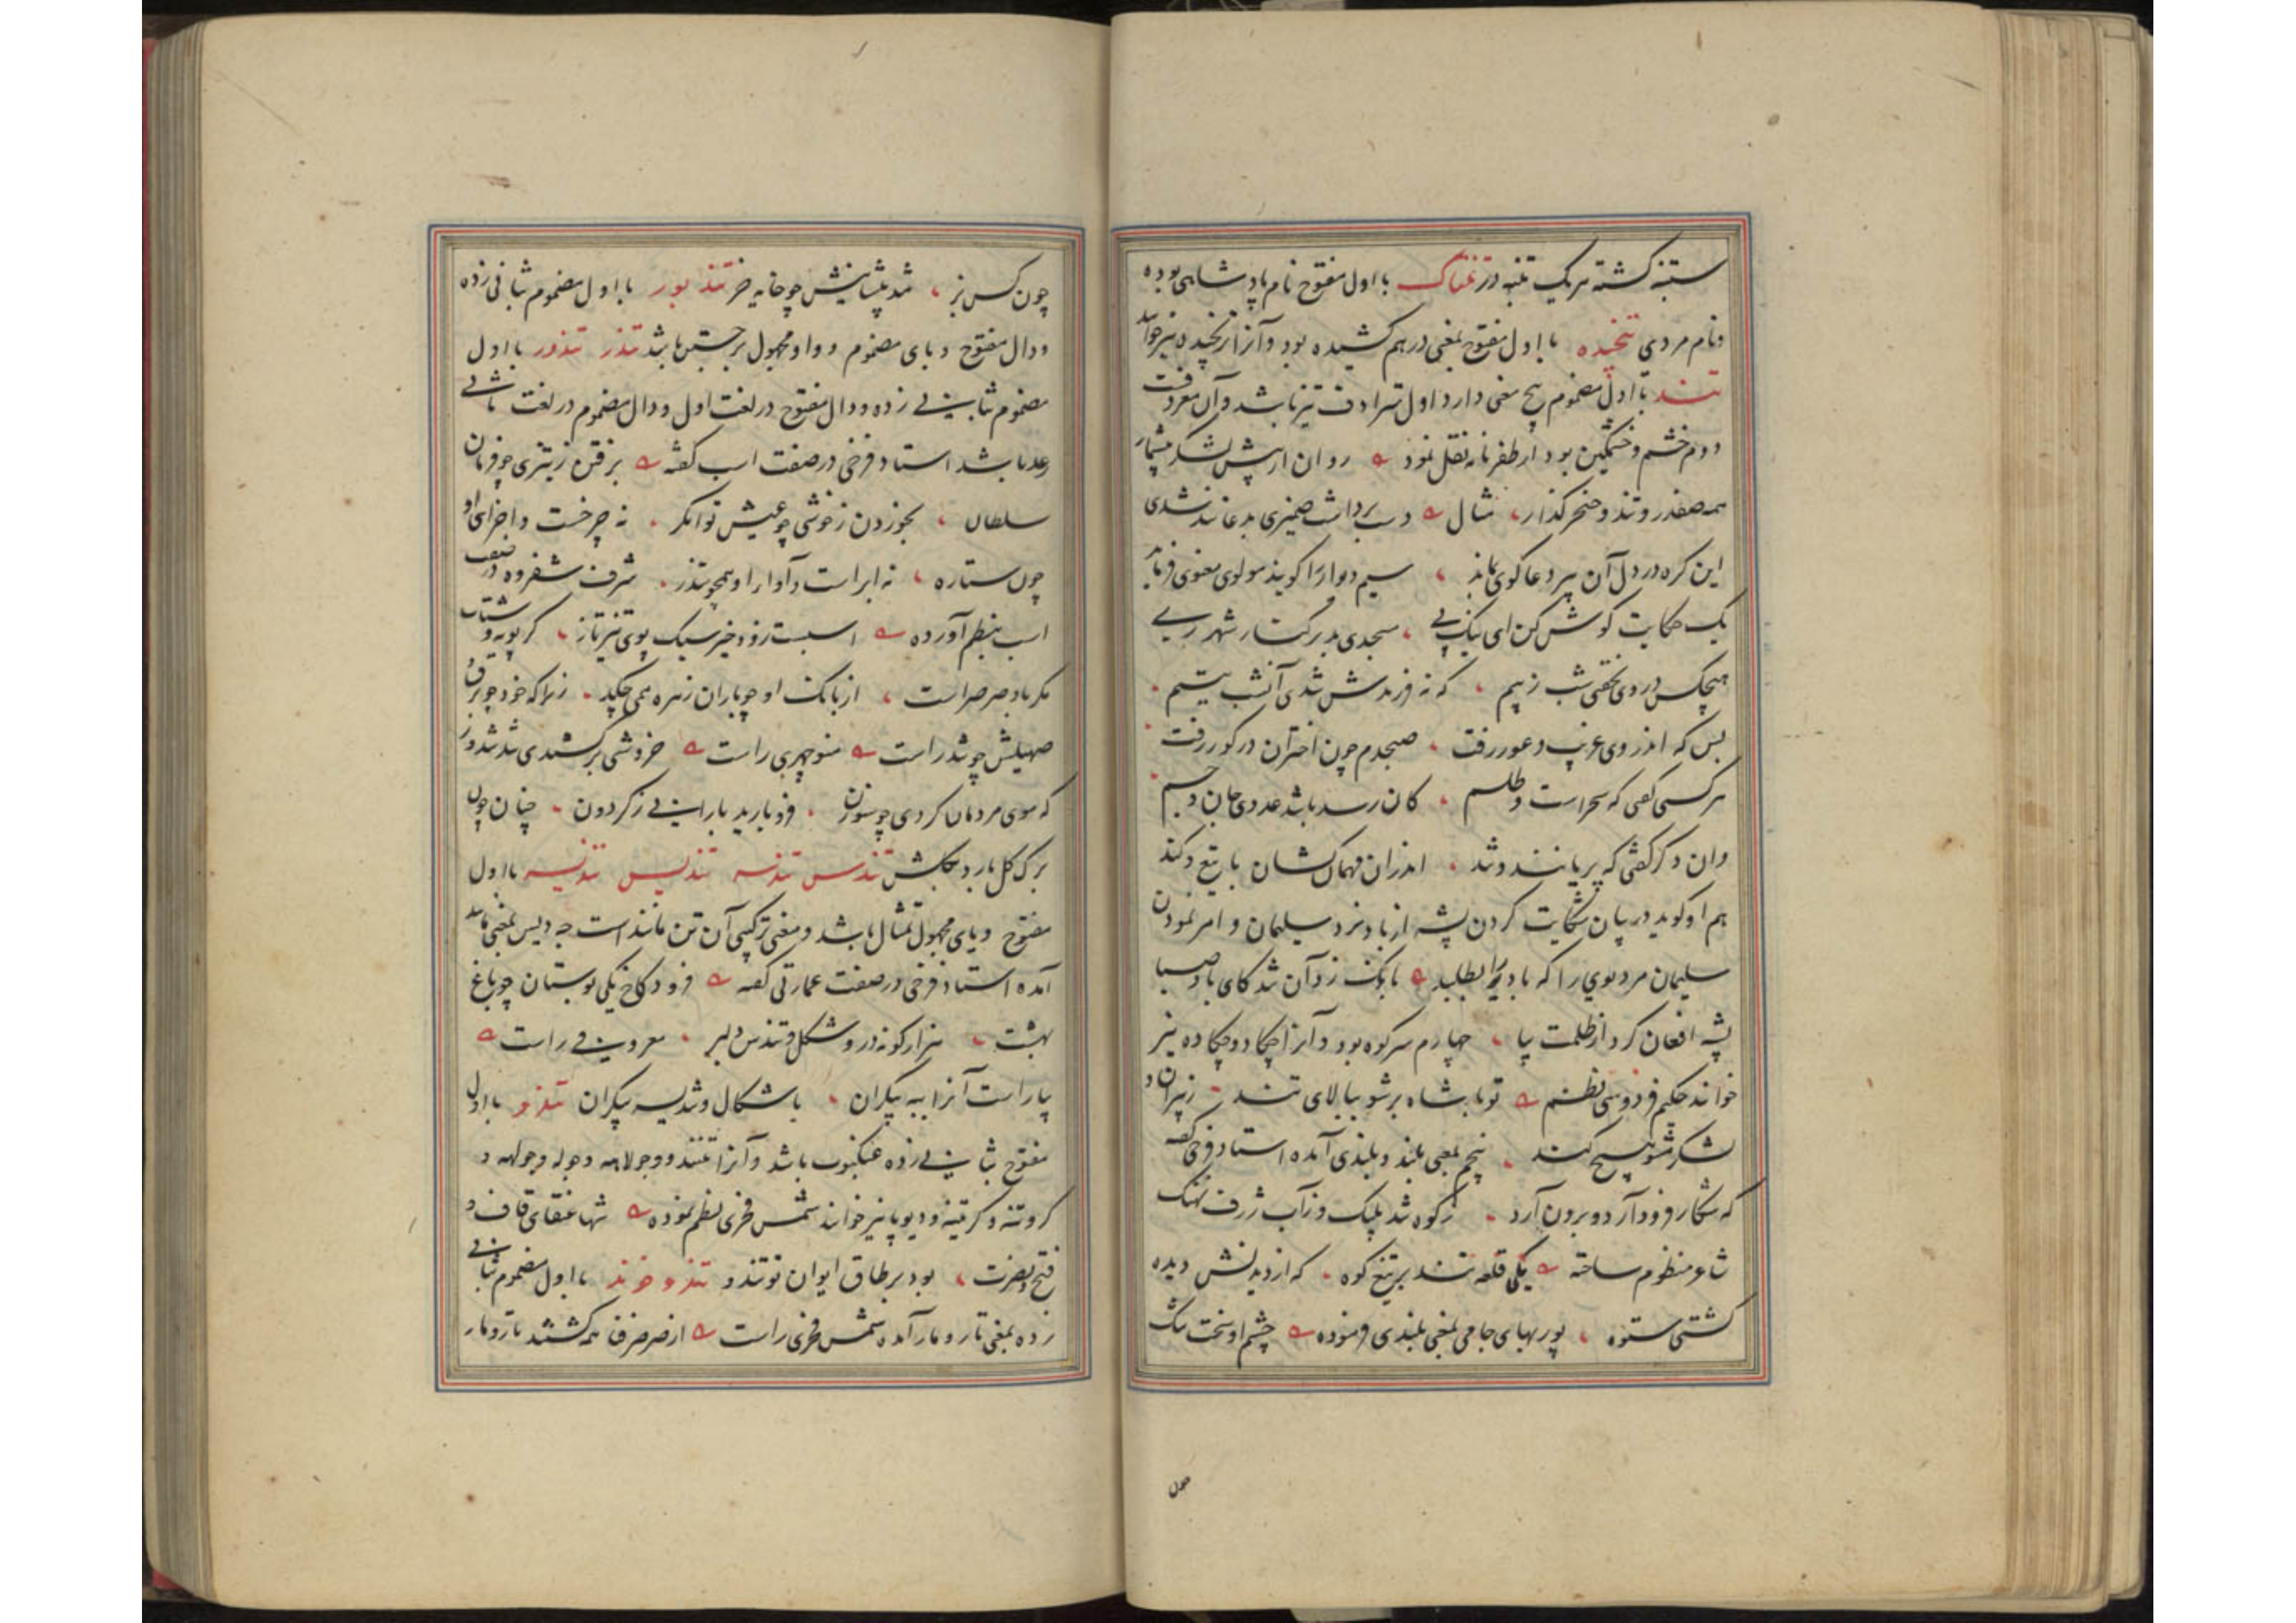 ستنبه کشته هر یک تنبه در تنناک با اول مفتوح نام پادشاهی بوده
ونام مردی تنجیده با اول مفتوح بمعنی درهم کشیده بود وآنرا ترنجیده نیز خوانند
تند با اول مضموم پنج معنی دارد اول مترادف تیز باشد وآن معروفست
دوم خشم وخشمگین بود از ظفرنامه نقل نمود روان از پیش لشکر بیشمار
همه صفدر وتند وخنجر گذار، مثال دست برداشت ضمیری بدعا تند شدی
این کره در دل آن پیر دعا کوی بماند ، سیم دیوار را کویند مولوی معنوی فرماید
یک حکایت کوش کن ای نیک پی ، مسجدی بد بر کنار شهر ری
هیچکس در وی نخفتی شب ز بیم ، که نه فرزندش شدی آنشب یتیم
بس که اندر وی غریب وعور رفت ، صبحدم چون اختران در کور رفت
هر کسی کفتی که سحر است وطلسم ، کان رصد باشد عدوی جان وجسم
وان دکر کفتی که پریانند وتند ، اندران مهمان کشان با تیغ کند
هم او کوید در بیان شکایت کردن پشه از باد نزد سلیمان و امر نمودن
سلیمان مر دیوی را که باد را بطلبید بانک زد آن شه که ای باد صبا
پشه افغان کرد از ظلمت بیا ، چهارم سر کوه بود وآنرا چکاد وچکاده نیز
خوانند حکیم فردوسی نظم تو با شاه بر شو ببالای تند ، ز پیران و
لشکر مشو هیچ کند ، پنجم بمعنی بلند وبلندی آمده استاد فرخی کفته
که شکار فرود آرد وبرون آرد ، ز کوه تند پلنک وز آب ژرف نهنک
شاعر منظوم ساخته یکی قلعه تند بر تیغ کوه ، که از دیدنش دیده
کشتی ستوه ، پور بهای جامی بمعنی بلندی فرموده چشم او سخت تنک
چون
چون کس بز ، تند پیشانیش چو خایه خر تندبور با اول مضموم بثانی زده
ودال مفتوح وبای مضموم وواو مجهول برجستن باشد تندر تندور با اول
مضموم بثانی زده ودال مفتوح در لغت اول ودال مضموم در لغت ثانی
رعد باشد استاد فرخی در صفت اسب کفته برفتن ز تیزی چو فرمان
سلطان ، بخوردن ز خوشی چو عیش توانکر ، نه چرخست واجزای او
چون ستاره ، نه ابر است وآوار او همچو تندر ، شرف شفروه در صفت
اسب بنظم آورده اسبست رود خیز سبک پوی تیزتاز ، کر پویه وشتاب
مکر باد صرصر است ، از بانک او چو باران زهره همی چکید ، زیرا که خود چو برق
صهیلش چو تندر است منوچهری راست خروشی برکشیدی تند تندر
که موی مردمان کردی چو سوزن ، فرو بارید بارانی ز کردون ، چنان چون
برک کل بارد بکلشن تندس تندسه تندیس تندیسه با اول
مفتوح ویای مجهول تمثال باشد ومعنی ترکیبی آن تن مانند است چه دیس بمعنی مانند
آمده استاد فرخی در صفت عمارتی کفته فرود کاخ یکی بوستان چو باغ
بهشت ، هزار کونه در و شکل و تندس دلبر ، معروفی راست
بیاراست آنرا به پیکران ، باشکال وتندیسه پیکران تندو با اول
مفتوح بثانی زده عنکبوت باشد وآنرا تننده وجولاهه وجوله وجولهه و
کروتنه وکرتینه ودیوپا نیز خوانند شمس فخری نظم نموده شها عنقای قاف و
فتح ونصرت ، بود بر طاق ایوان تو تندو تندوخوند با اول مضموم بثانی
زده بمعنی تار ومار آمده شمس فخری راست از صرصر همه کشتند تار ومار